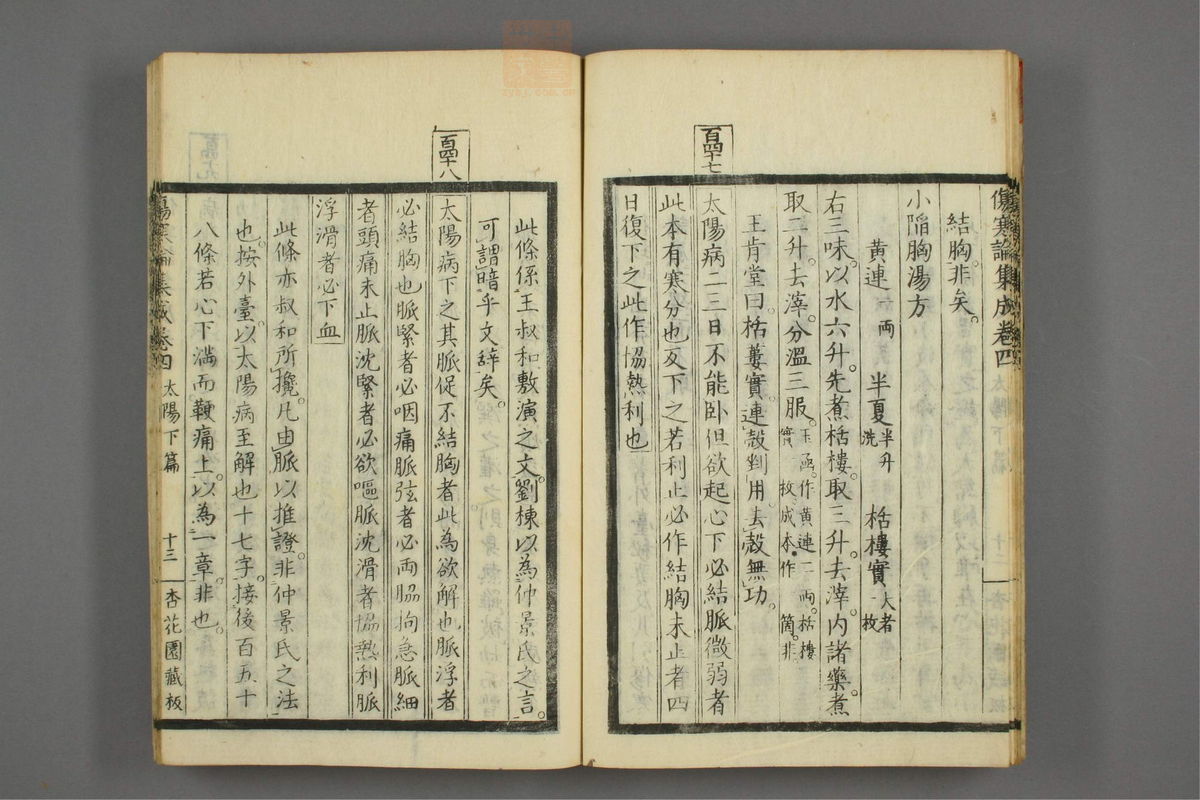 傷寒論集成卷四
結胸。非矣。
小陷胸湯方
黃連一兩 半夏半升洗 栝樓實大者一枚
右三味。以水六升。先煮栝樓。取三升。去滓。內諸藥。煮
取二升。去滓。分溫三服。玉函。作黃連二兩。栝樓實一枚。成本。作一箇。非
王肯堂曰。栝蔞實。連殼剉用。去殼無功。
百四十七
太陽病二三日不能臥但欲起心下必結脈微弱者
此本有寒分也反下之若利止必作結胸未止者四
日復下之此作協熱利也
此條係王叔和敷演之文。劉棟以為仲景氏之言。
可謂暗乎文辭矣。
百四十八
太陽病下之其脈促不結胸者此為欲解也脈浮者
必結胸也脈緊者必咽痛脈弦者必兩脇拘急脈細
者頭痛未止脈沈緊者必欲嘔脈沈滑者協熱利脈
浮滑者必下血
此條亦叔和所攙。凡由脈以推證。非仲景氏之法
也。按外臺。以太陽病至解也十七字。接後百五十
八條若心下滿而鞕痛上。以為一章。非也。
傷寒論集成卷四 太陽下篇 十三 杏花園藏板